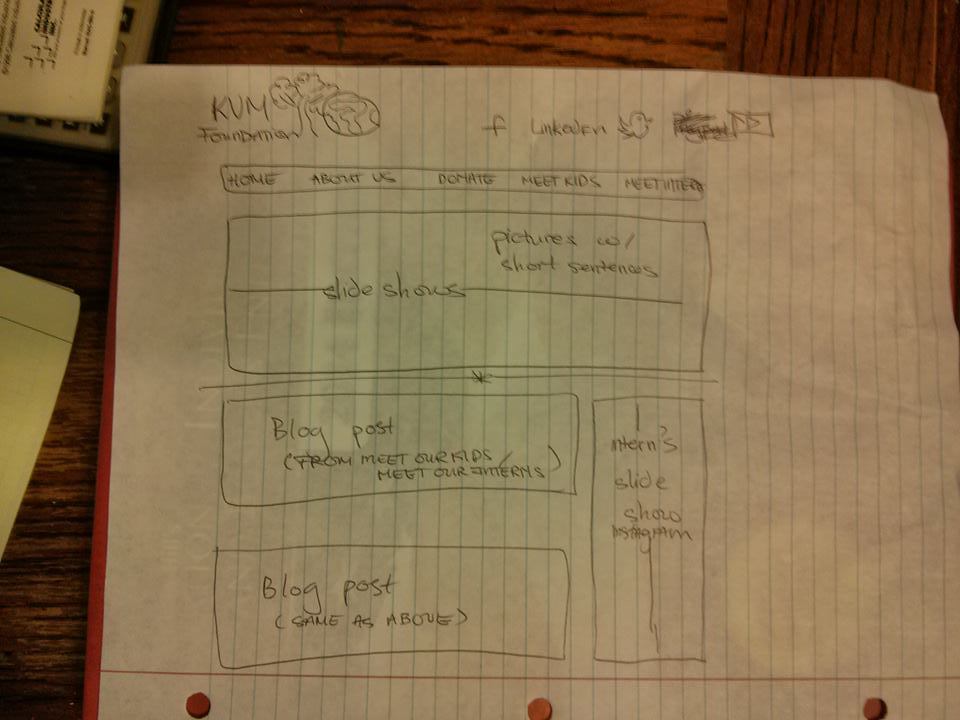 KUM
Foundation
f Linkedin
HOME ABOUT US DONATE MEET KIDS MEET INTERN
pictures w/
short sentences
slide shows
Blog post
(FROM MEET OUR KIDS/
MEET OUR INTERNS)
Intern's
slide
show
INSTAGRAM
Blog post
(SAME AS ABOVE)